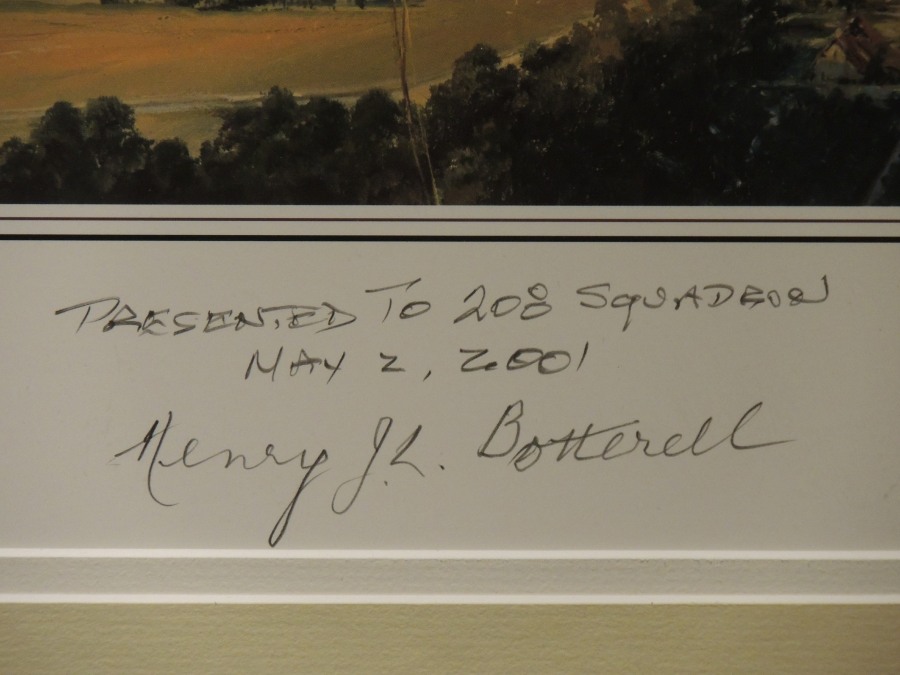 PRESENTED TO 208 SQUADRON
MAY 2, 2001
Henry J.L. Botterell